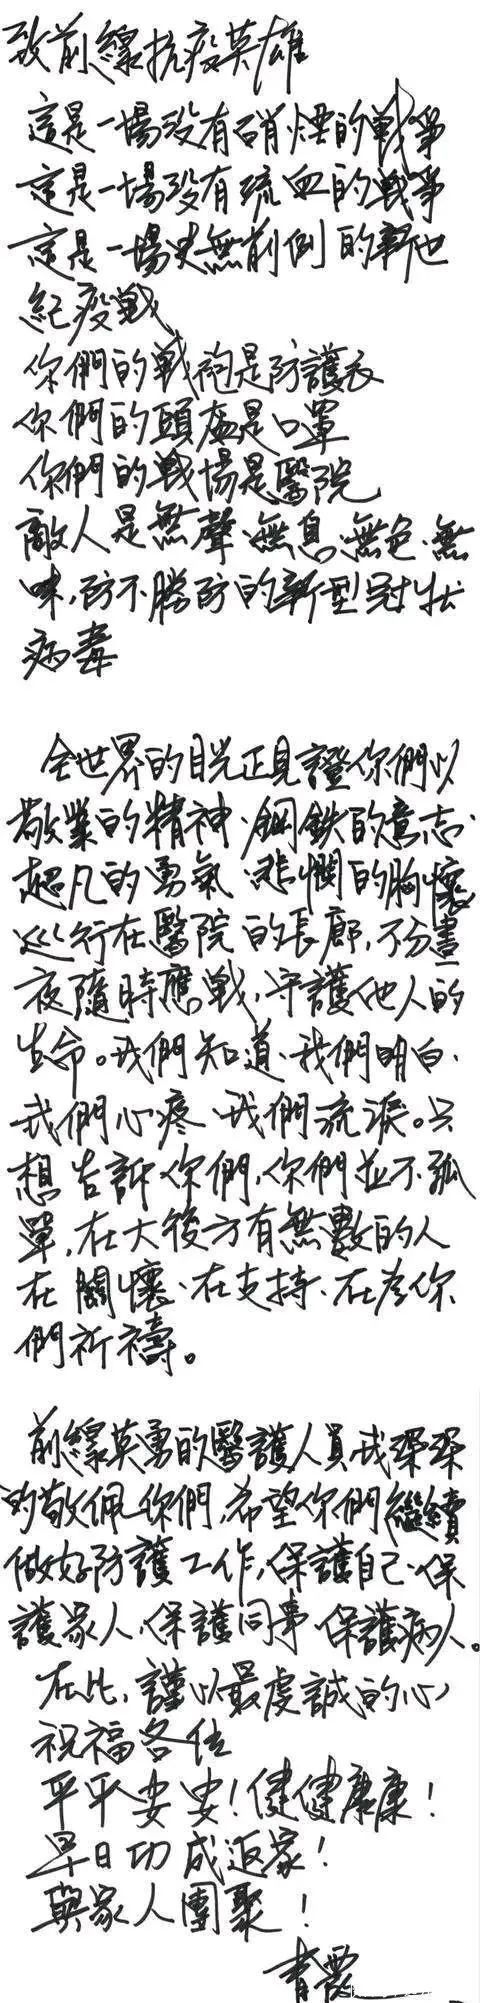 致前線抗疫英雄
這是一場沒有硝煙的戰爭
這是一場沒有流血的戰爭
這是一場史無前例的新世
紀疫戰
你們的戰袍是防護衣
你們的頭盔是口罩
你們的戰場是醫院
敵人是無聲、無息、無色、無
味，防不勝防的新型冠狀
病毒
全世界的目光正見證你們以
敬業的精神、鋼鐵的意志、
超凡的勇氣、悲憫的胸懷
巡行在醫院的長廊，不分晝
夜隨時應戰，守護他人的
生命。我們知道、我們明白、
我們心疼、我們流淚。只
想告訴你們，你們並不孤
單，在大後方有無數的人
在關懷、在支持、在為你
們祈禱。
前線英勇的醫護人員，我深深
的敬佩你們，希望你們繼續
做好防護工作，保護自己、保
護家人、保護同事、保護病人。
在此，謹以最虔誠的心
祝福各位
平平安安！健健康康！
早日功成返家！
與家人團聚！
青霞